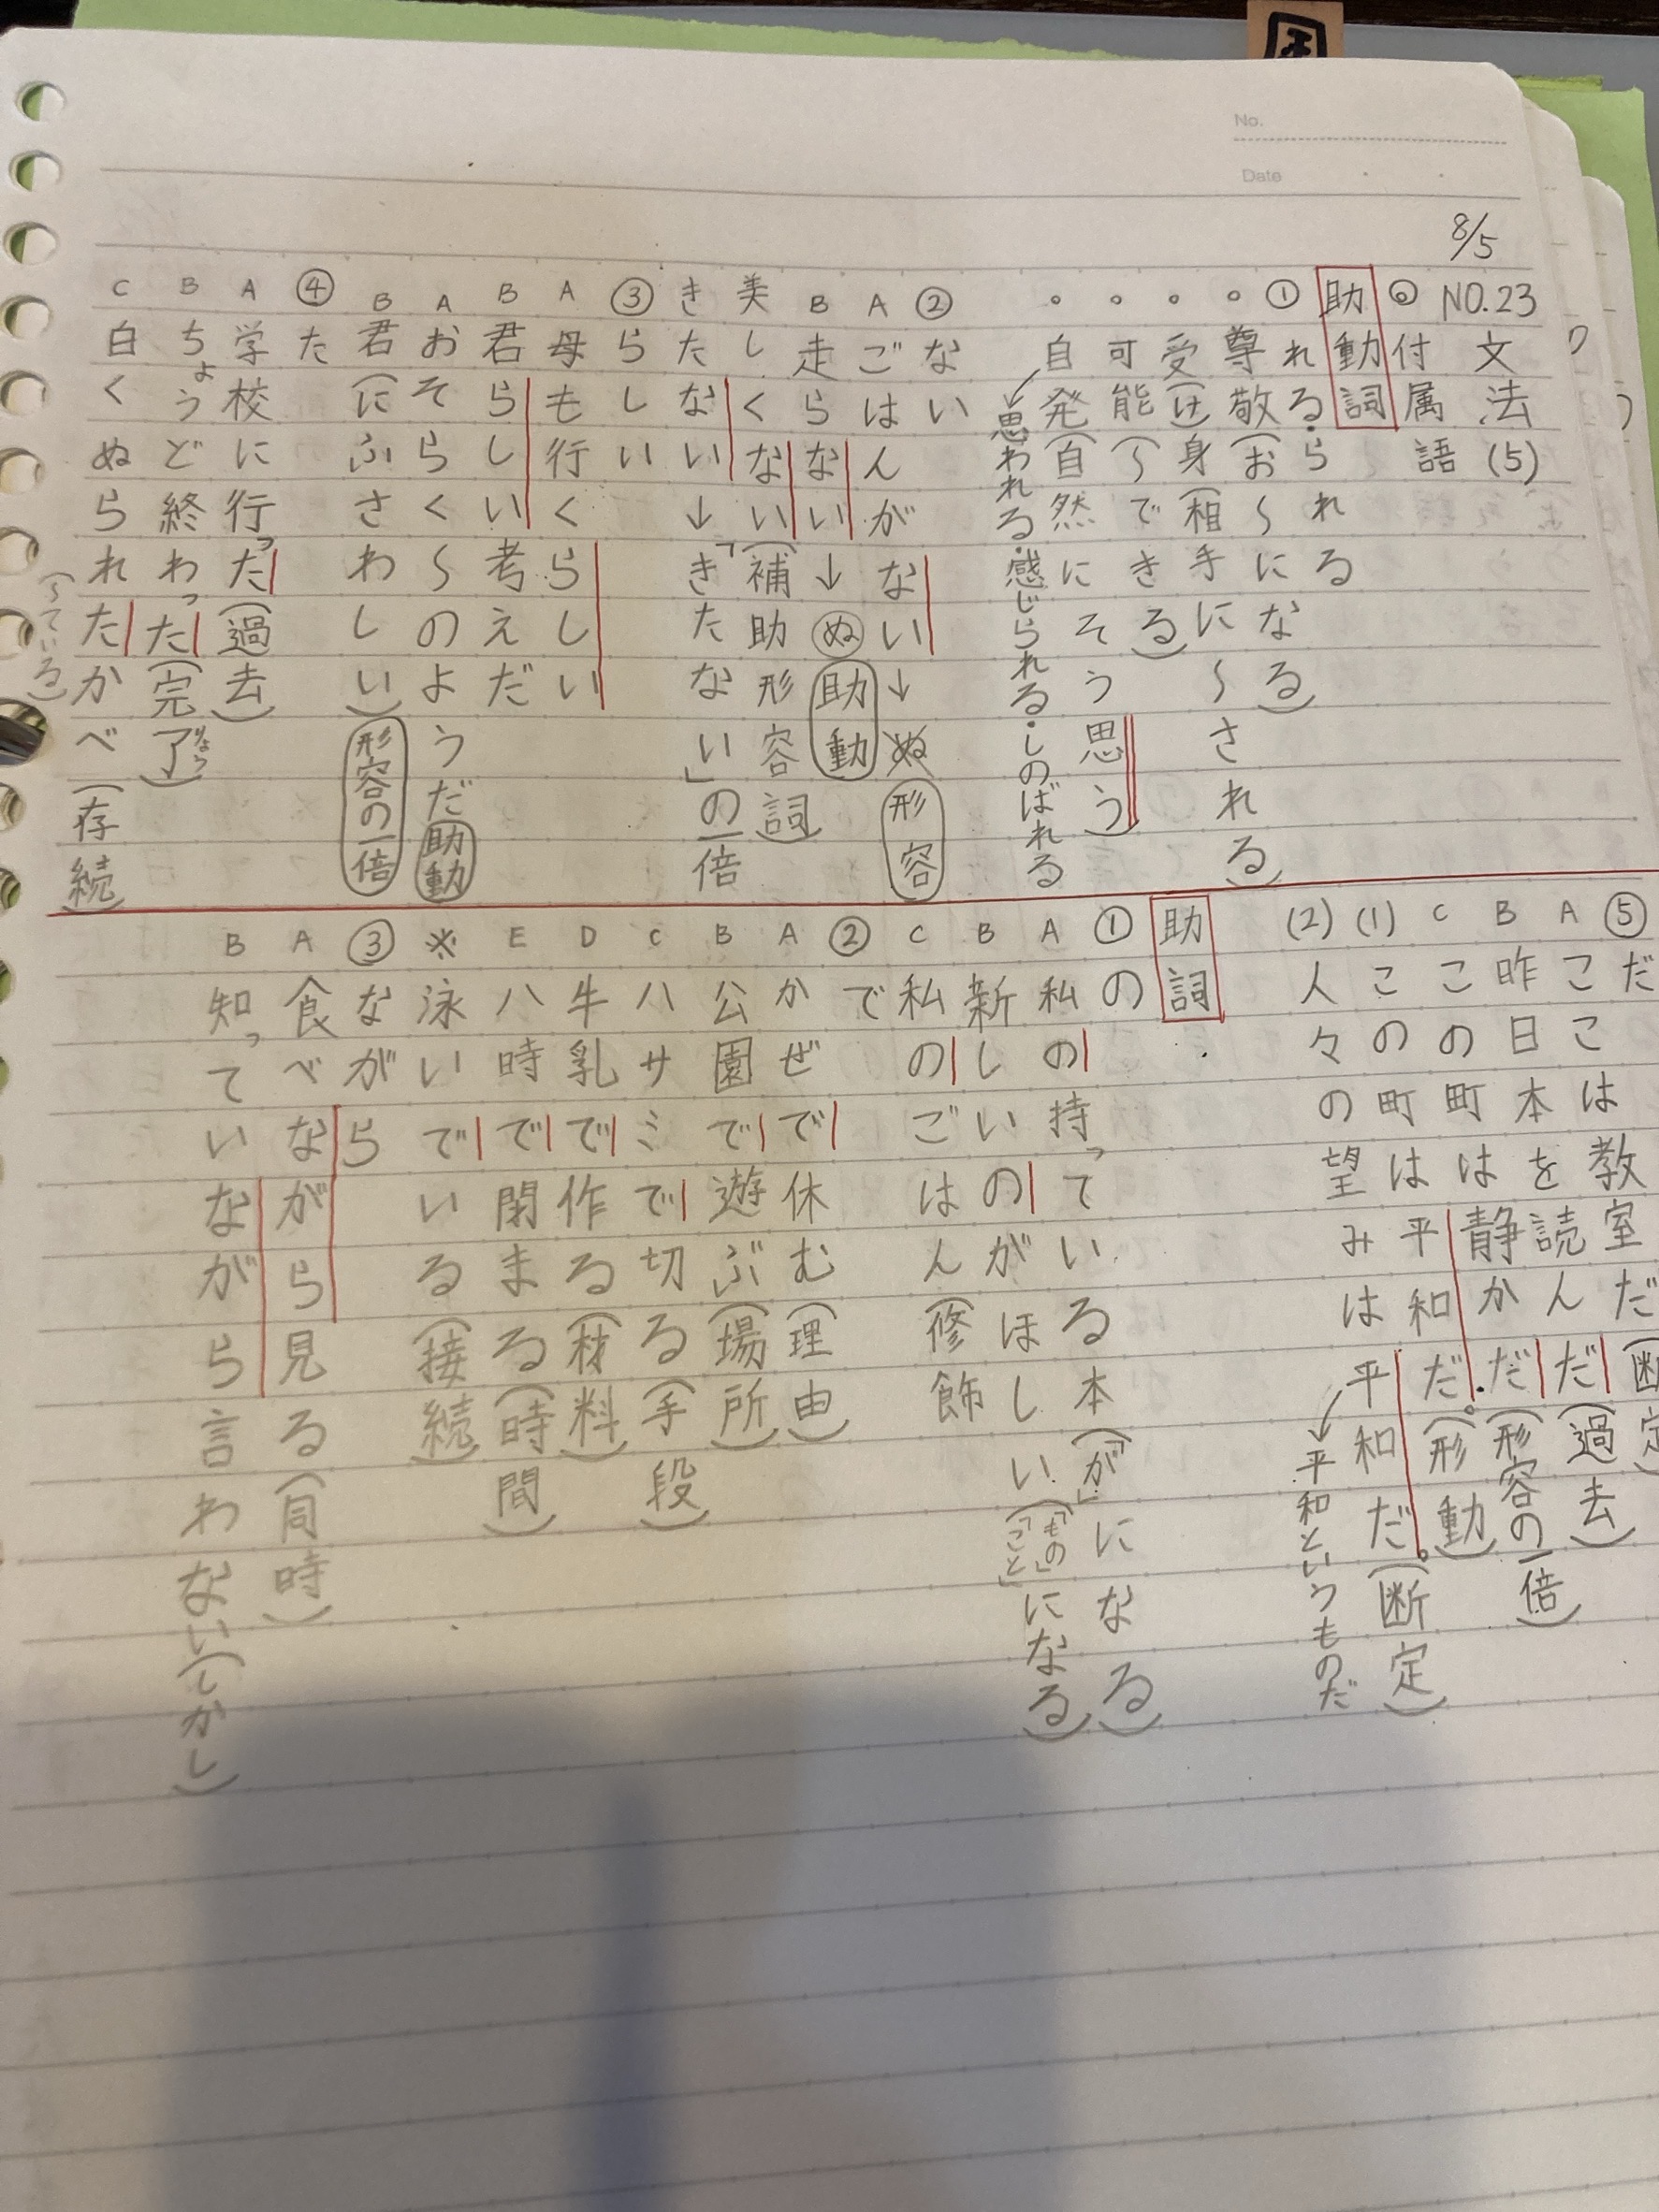 No.
Date
8/5
NO.23 文法(5)
◎付属語
助動詞
①れる・られる
。尊敬(お～になる)
。受け身(相手に～される)
。可能(～できる)
。自発(自然にそう思う)
→思われる・感じられる・しのばれる
②ない
Aごはんがない→ぬ 形容
B走らない→ぬ 助動
美しくない(補助形容詞)
きたない→「きたない」の一倍
③らしい
A母も行くらしい
B君らしい考えだ
Aおそらく～のようだ 助動
B君(にふさわしい) 形容の一倍
④た
A学校に行った(過去)
Bちょうど終わった(完了)りょう
C白くぬられたかべ(存続)
(～ている)
⑤だ
Aここは教室だ(断定
B昨日本を読んだ(過去)
Cこの町は静かだ。(形容の一倍)
(1)この町は平和だ。(形動)
(2)人々の望みは平和だ。(断定)
→平和というものだ
助詞
①の
A私の持っている本(「が」になる)
B新しいのがほしい(「もの」「こと」になる)
C私のごはん(修飾
②で
Aかぜで休む(理由)
B公園で遊ぶ(場所)
Cハサミで切る(手段)
D牛乳で作る(材料)
E八時で閉まる(時間)
※泳いでいる(接続)
③ながら
A食べながら見る(同時)
B知っていながら言わない(しかし)